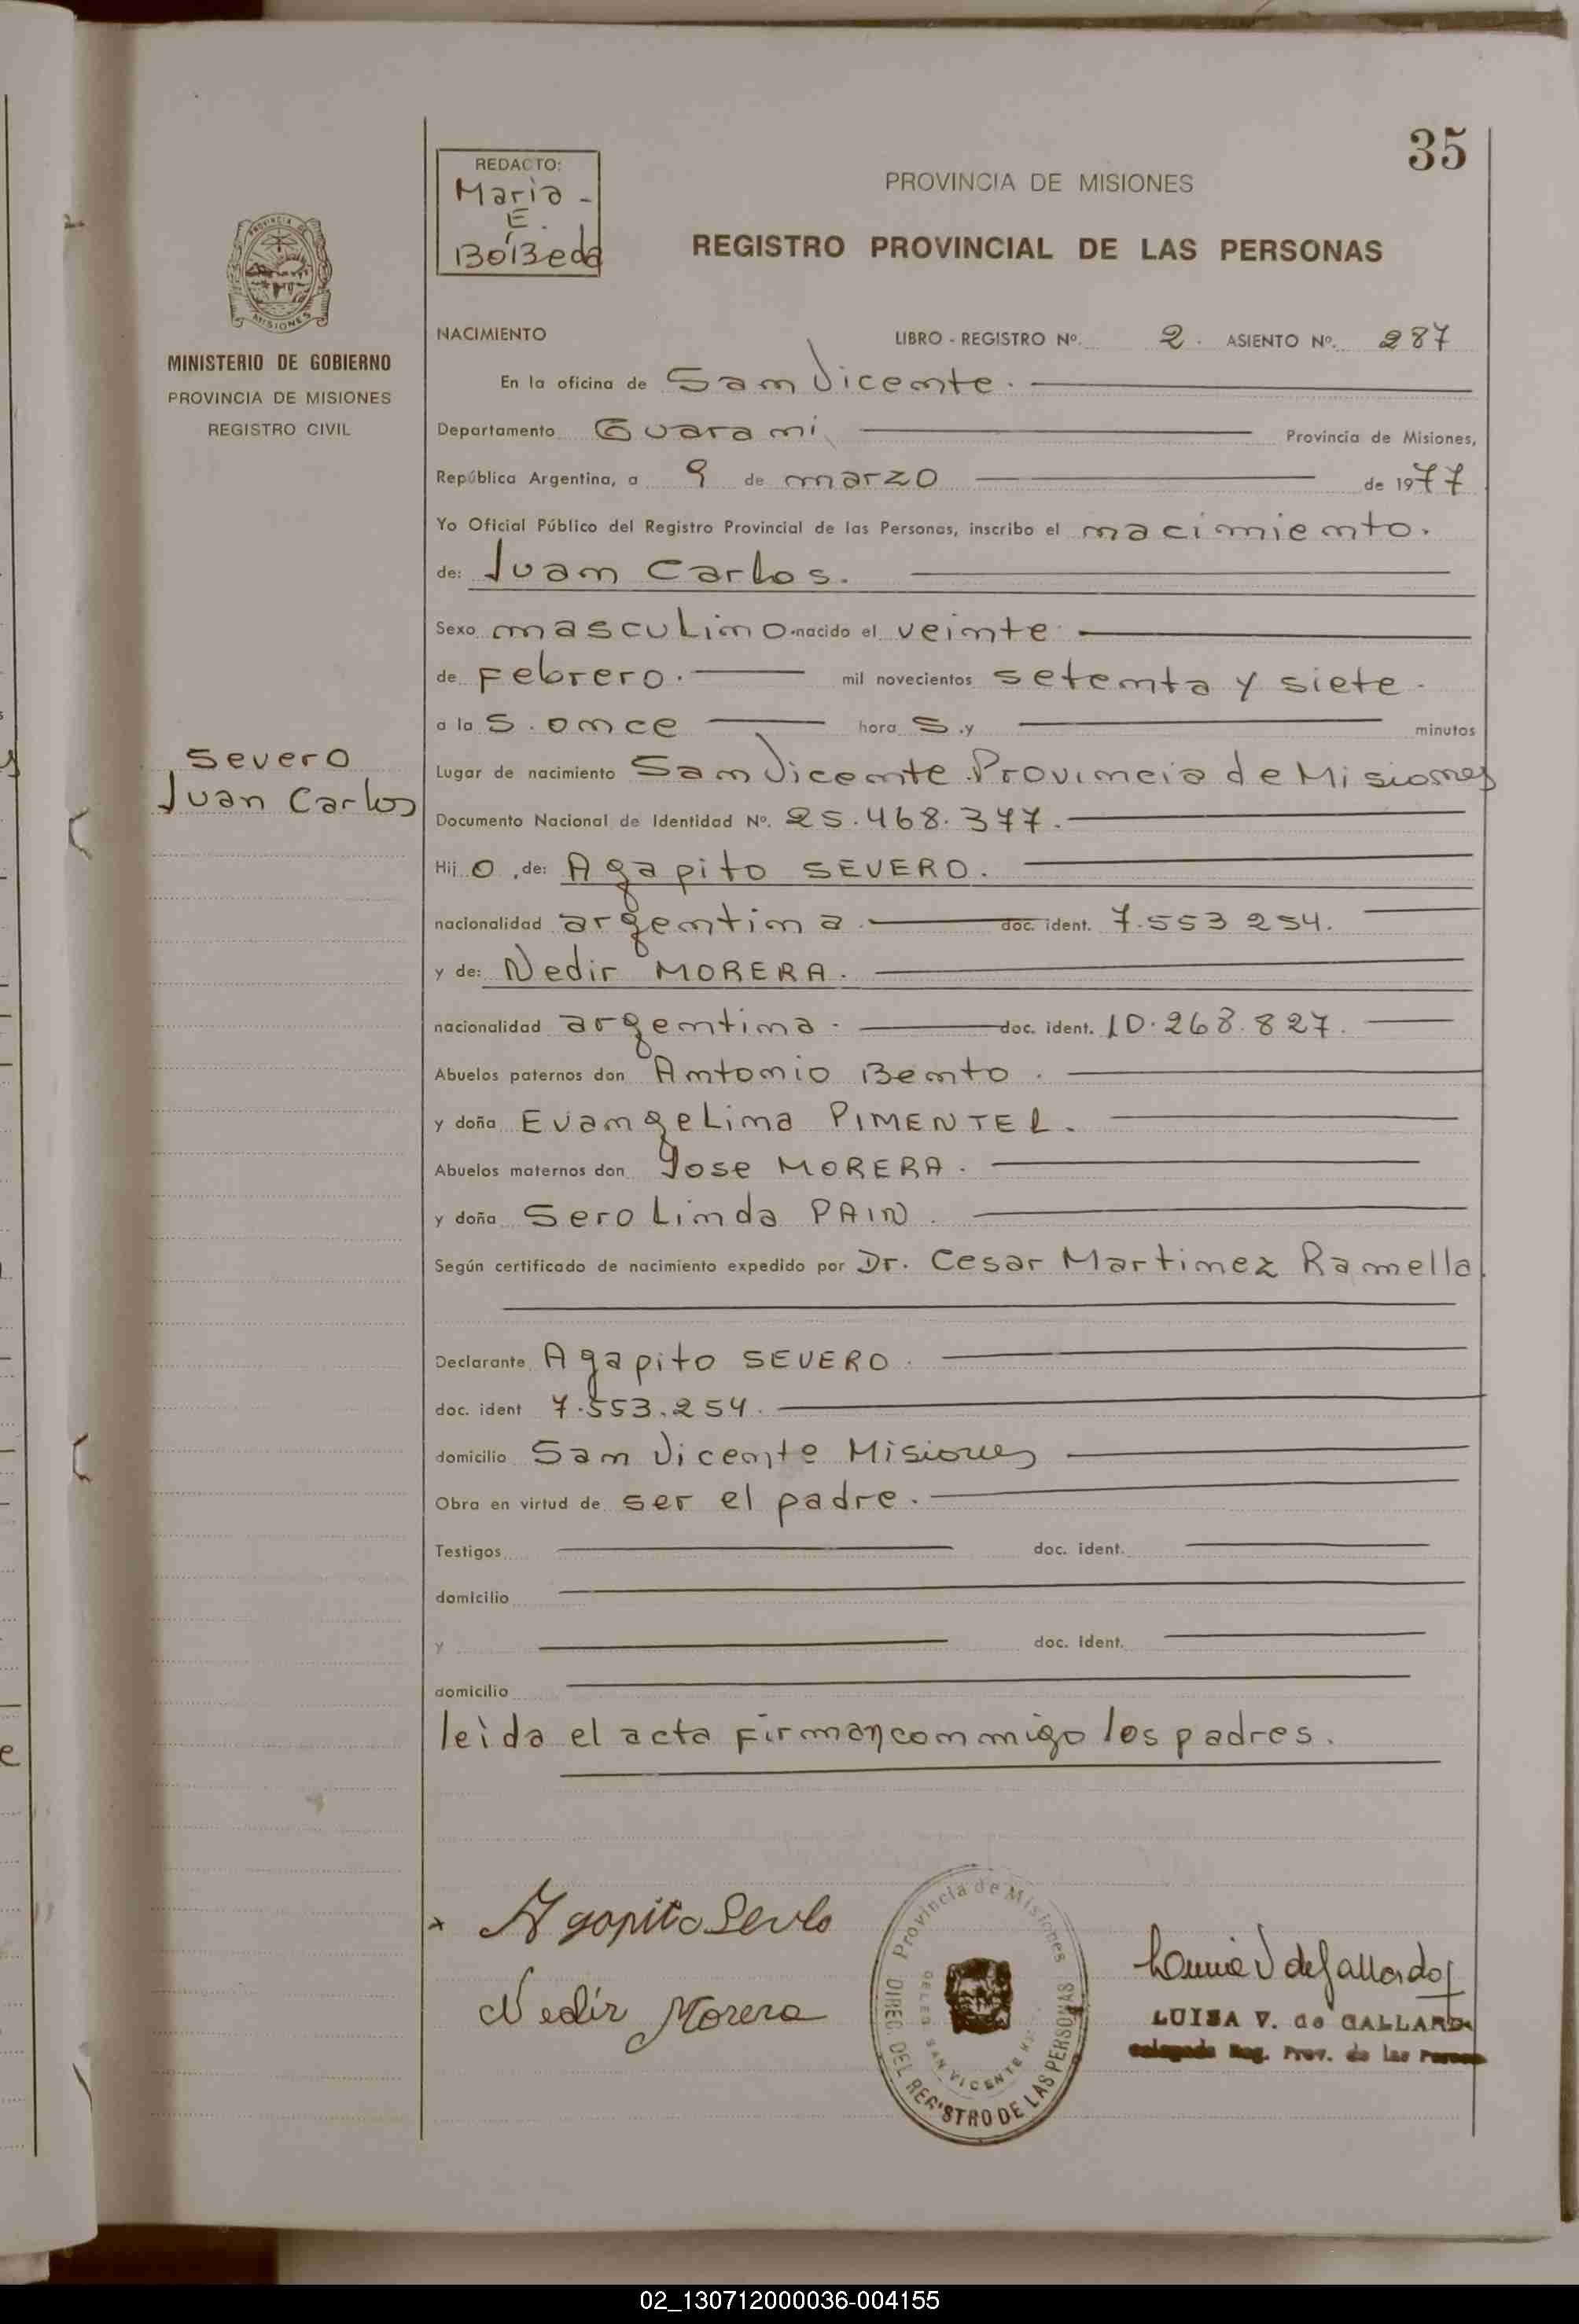 35
REDACTO:
Maria -
E.
BóBeda
PROVINCIA DE MISIONES
REGISTRO PROVINCIAL DE LAS PERSONAS
MINISTERIO DE GOBIERNO
PROVINCIA DE MISIONES
REGISTRO CIVIL
NACIMIENTO LIBRO - REGISTRO Nº. 2. ASIENTO Nº. 287
En la oficina de San Vicente.
Departamento Guarani Provincia de Misiones,
República Argentina, a 9 de marzo de 1977
Yo Oficial Público del Registro Provincial de las Personas, inscribo el nacimiento.
de: Juan Carlos.
Sexo masculino nacido el veinte
de Febrero. mil novecientos setenta y siete.
a las. once horas.y minutos
Severo
Juan Carlos
Lugar de nacimiento San Vicente Provincia de Misiones
Documento Nacional de Identidad Nº. 25.468.377.
Hijo, de: Agapito SEVERO.
nacionalidad argentina. doc. ident. 7.553 254.
y de: Nedir MORERA.
nacionalidad argentina. doc. ident. 10.268.827.
Abuelos paternos don Antonio Bento.
y doña Evangelina PIMENTEL.
Abuelos maternos don Jose MORERA.
y doña Serolinda PAIN.
Según certificado de nacimiento expedido por Dr. Cesar Martinez Ramella.
Declarante Agapito SEVERO.
doc. ident 7.553.254.
domicilio San Vicente Misiones
Obra en virtud de ser el padre.
Testigos doc. ident.
domicilio
y doc. ident.
domicilio
leìda el acta Firman conmigo los padres.
Agapito Severo
Nedir Morera
Provincia de Misiones
DIREC. DEL REGISTRO DE LAS PERSONAS
DELEG. SAN VICENTE
V de Gallardo
LUISA V. de GALLARDO
Delegada Reg. Prov. de las Personas
02_130712000036-004155